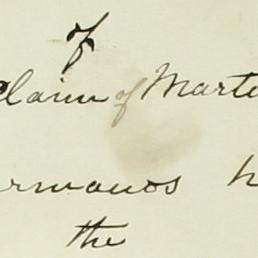 of
Claim of Marte
ermanos h
the